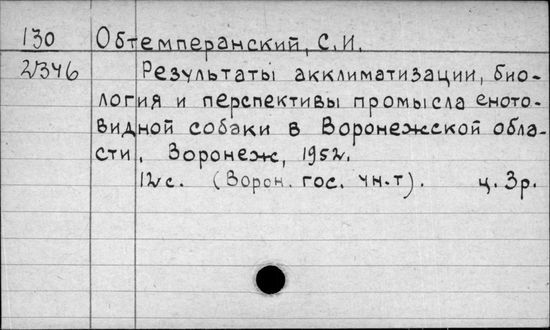 130 Обтемперанский, С.И.
2346 Результаты акклиматизации, био-
логия и перспективы промысла еното-
видной собаки в Воронежской обла-
сти. Воронеж, 1952.
12 с. (Ворон. гос. ун-т). ц. 3р.